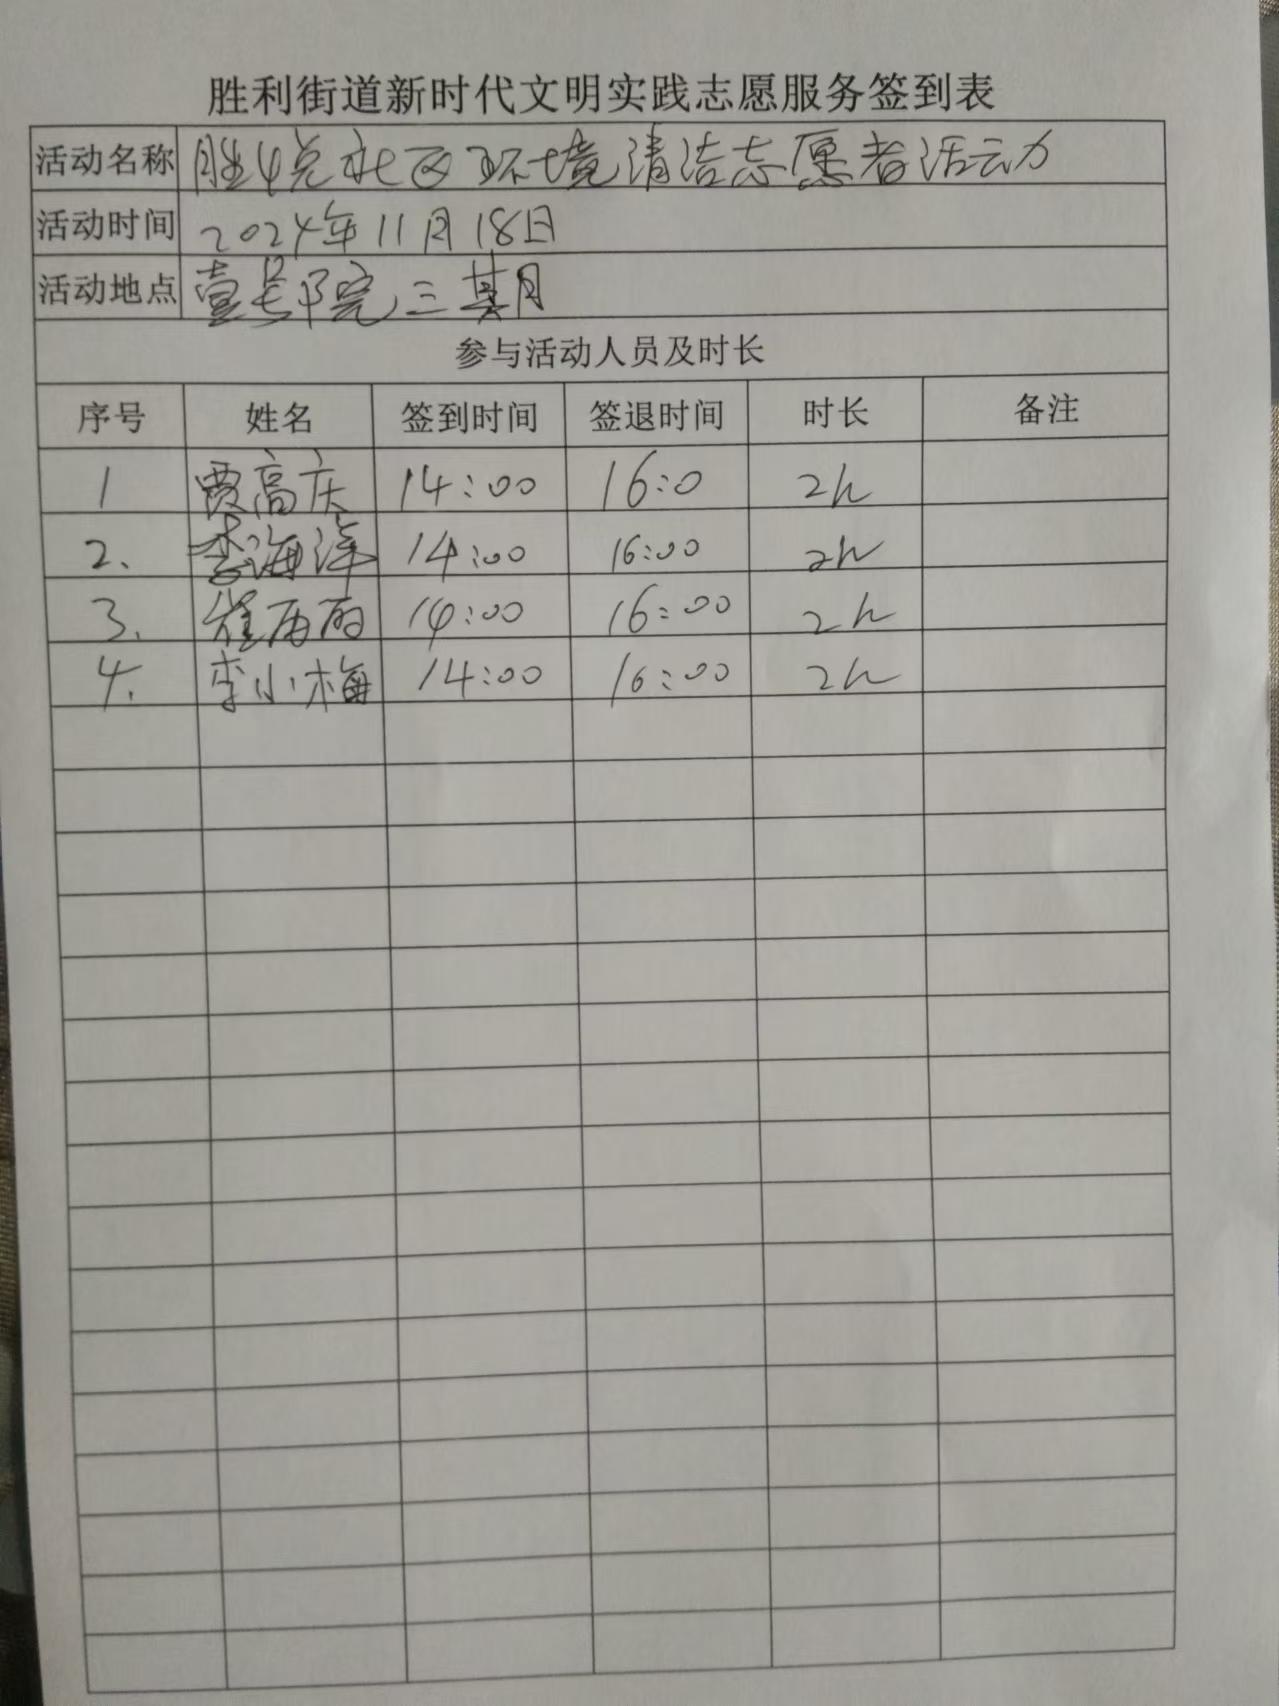 胜利街道新时代文明实践志愿服务签到表
活动名称 胜悦社区环境清洁志愿者活动
活动时间 2024年11月18日
活动地点 壹号院三期
参与活动人员及时长
序号 姓名 签到时间 签退时间 时长 备注
1 贾高庆 14:00 16:0 2h
2. 李海洋 14:00 16:00 2h
3. 崔丙雨 14:00 16:00 2h
4. 李小梅 14:00 16:00 2h